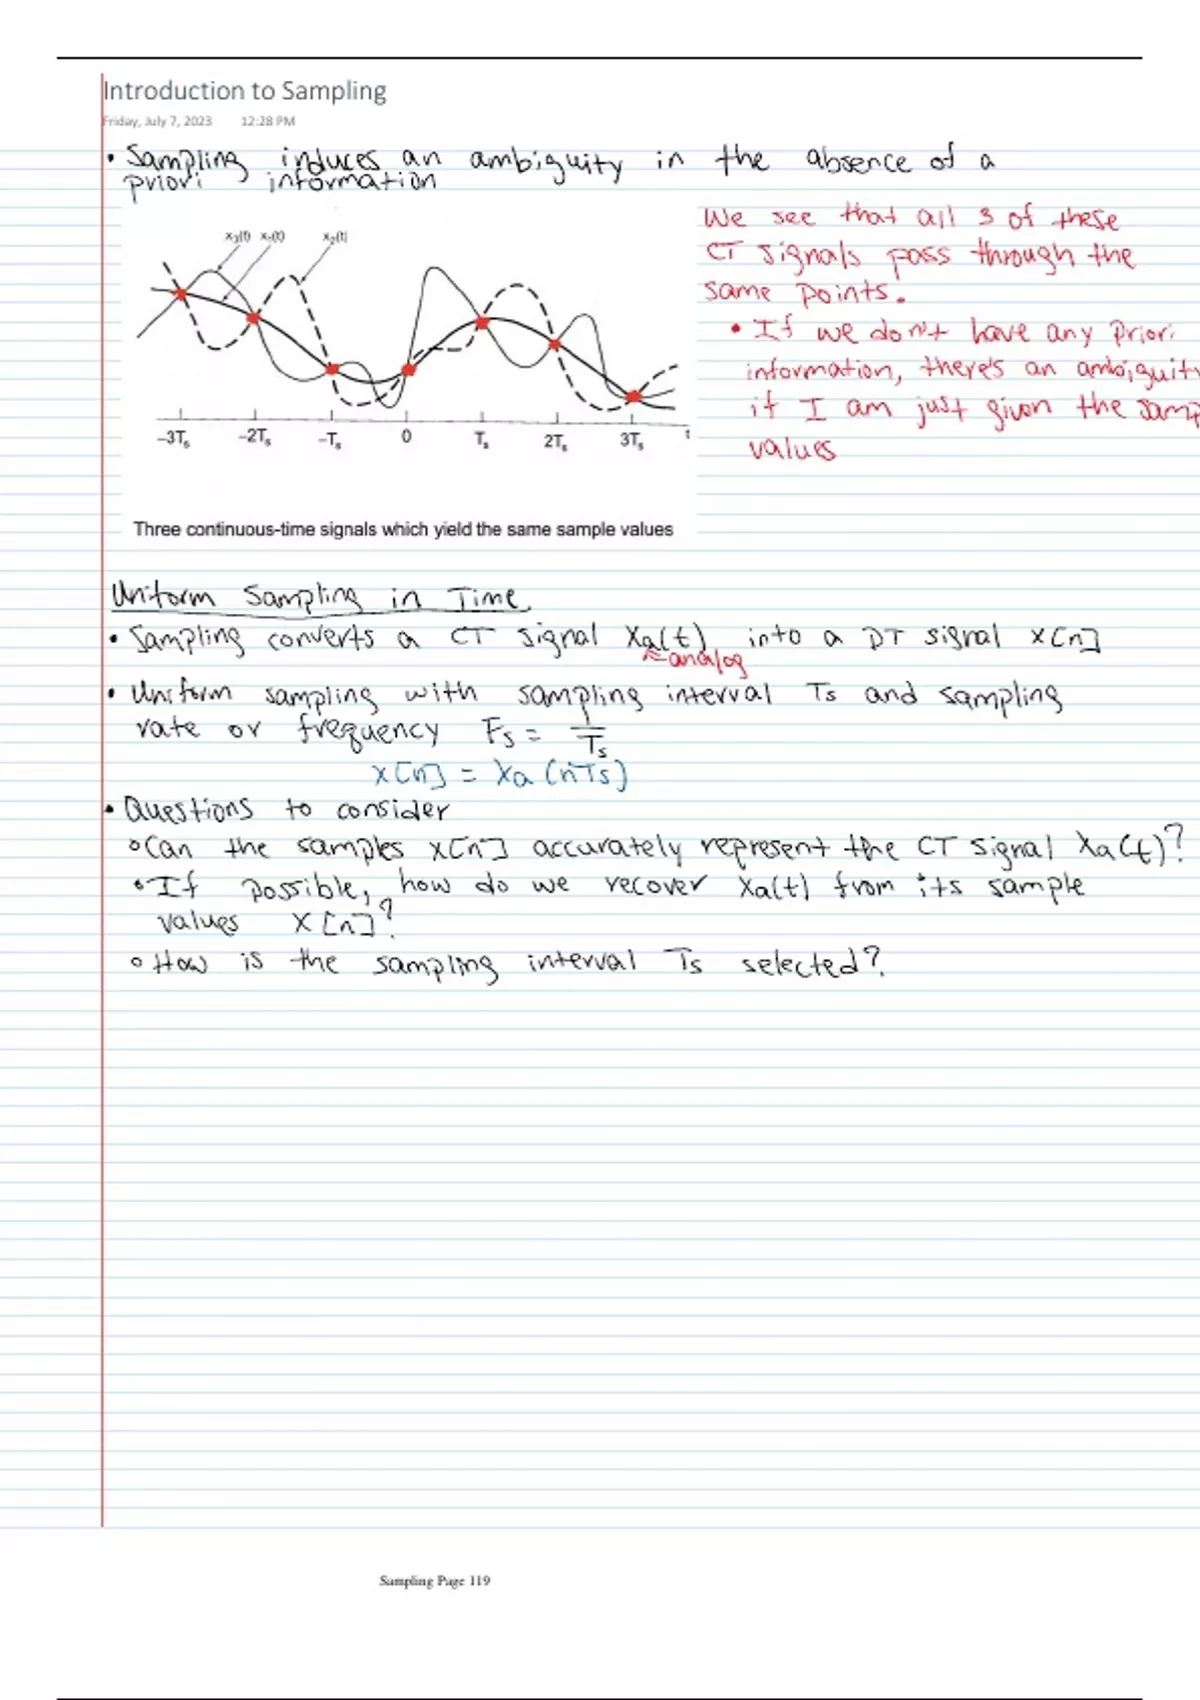 Introduction to Sampling
Friday, July 7, 2023 12:28 PM
• Sampling induces an ambiguity in the absence of a
priori information
x3(t) x1(t) x2(t)
-3Ts -2Ts -Ts 0 Ts 2Ts 3Ts t
Three continuous-time signals which yield the same sample values
We see that all 3 of these
CT signals pass through the
same points.
• If we don't have any priori
information, there's an ambiguity
if I am just given the samp
values
Uniform Sampling in Time
• Sampling converts a CT signal Xa(t) into a DT signal x[n]
analog
• Uniform sampling with sampling interval Ts and sampling
rate or frequency Fs = 1/Ts
x[n] = Xa(nTs)
• Questions to consider
o Can the samples x[n] accurately represent the CT signal Xa(t)?
• If possible, how do we recover Xa(t) from its sample
values x[n]?
o How is the sampling interval Ts selected?
Sampling Page 119